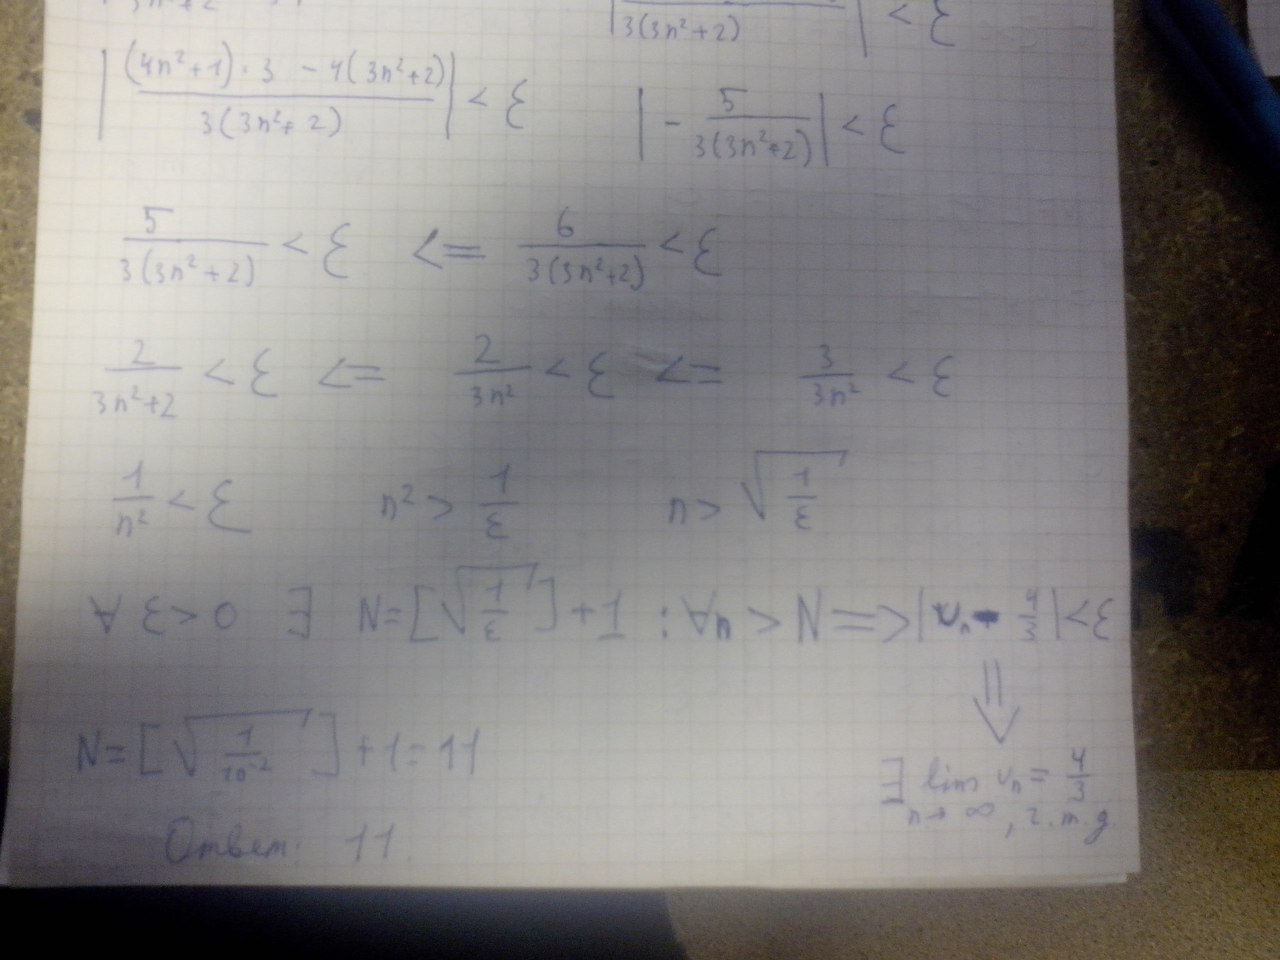 3(3n²+2) | < ε
| ((4n²+1)·3 − 4(3n²+2)) / (3(3n²+2)) | < ε | − 5 / (3(3n²+2)) | < ε
5 / (3(3n²+2)) < ε <= 6 / (3(3n²+2)) < ε
2 / (3n²+2) < ε <= 2 / 3n² < ε <= 3 / 3n² < ε
1 / n² < ε n² > 1/ε n > √(1/ε)
∀ ε > 0 ∃ N = [√(1/ε)] + 1 : ∀n > N => | vₙ − 4/3 | < ε
⇓
N = [√(1/10⁻²)] + 1 = 11
∃ lim vₙ = 4/3
n→∞, z.m.g.
Ответ: 11.